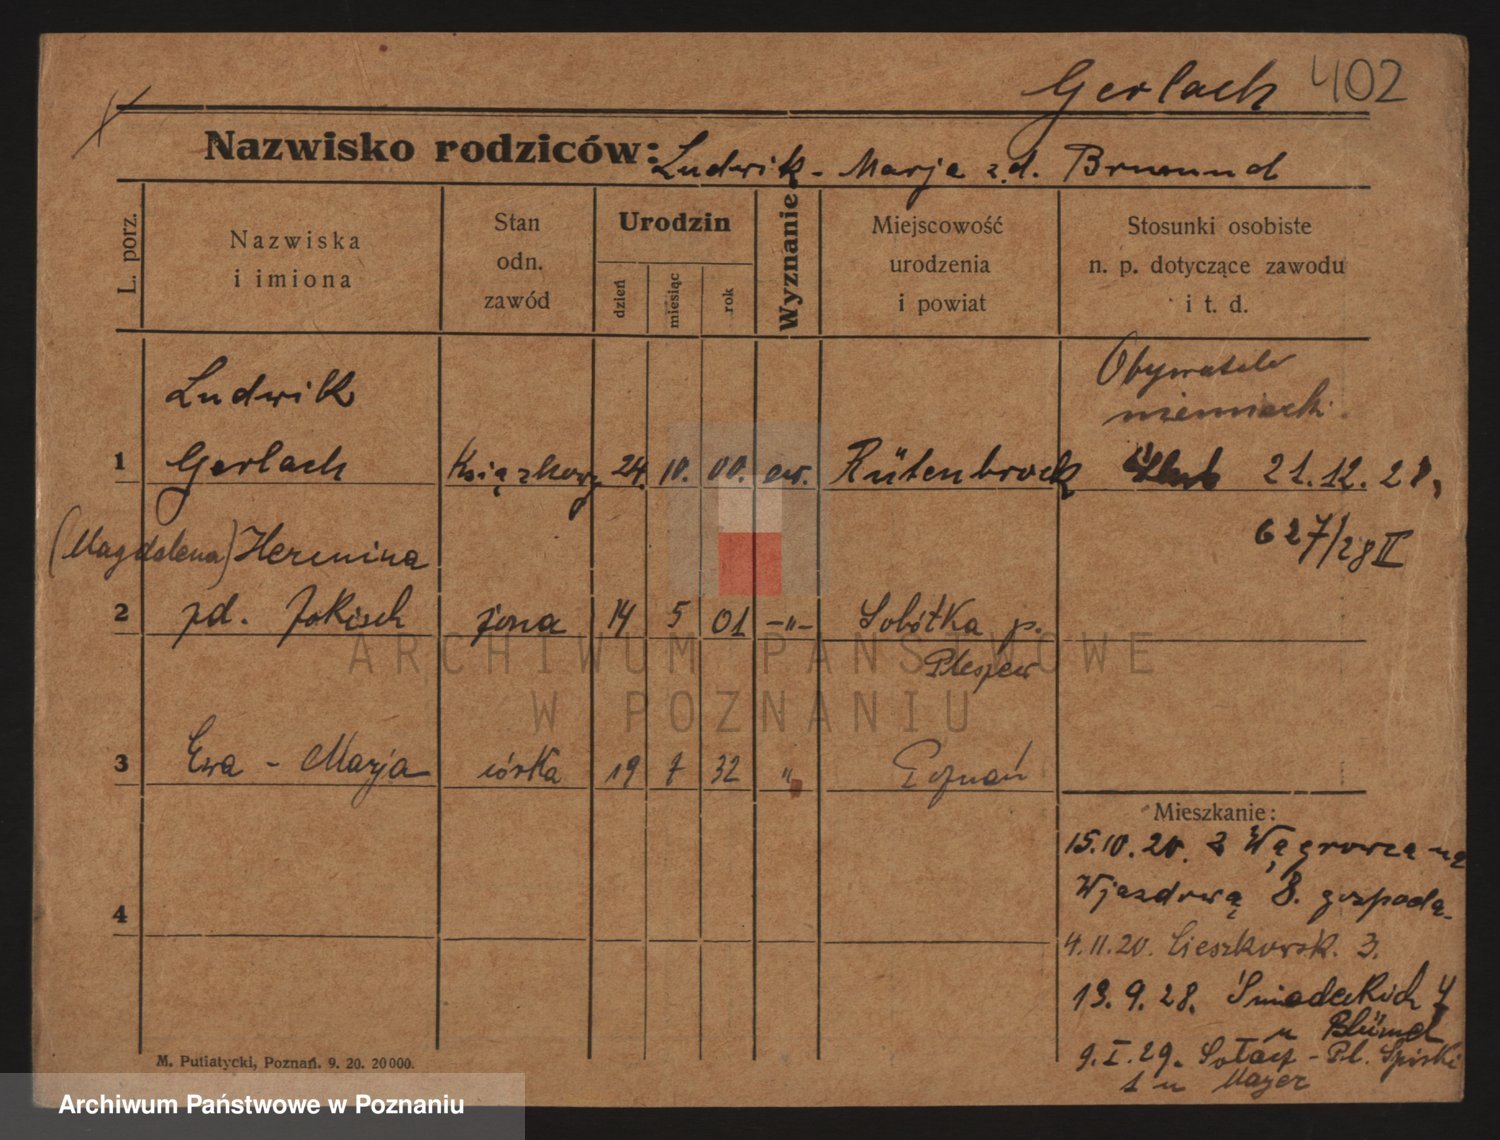 Gerlach 402
Nazwisko rodziców: Ludwik - Marja z d. Brumund
L. porz.
Nazwiska
i imiona
Stan
odn.
zawód
Urodzin
dzień
miesiąc
rok
Wyznanie
Miejscowość
urodzenia
i powiat
Stosunki osobiste
n. p. dotyczące zawodu
i t. d.
Ludwik
1 Gerlach Książkowy 24. 10. 00. ew. Rütenbrock
Obywatel
niemiecki.
Ślub 21.12.28,
627/28 II
(Magdalena) Hermina
2 zd. Jokisch żona 14 5 01 -"- Sobótka p.
Pleszew
3 Ewa - Marja córka 19 7 32 " Poznań
4
Mieszkanie:
15.10.20. z Wągrowca na
Wjazdową 8. gospoda.
4.11.20. Cieszkowsk. 3.
13.9.28. Śniadeckich 4
u Blümel
9.I.29. Sołacz - Pl. Spiski
1 u Mayer
M. Putiatycki, Poznań. 9. 20. 20000.
ARCHIWUM PAŃSTWOWE
W POZNANIU
Archiwum Państwowe w Poznaniu